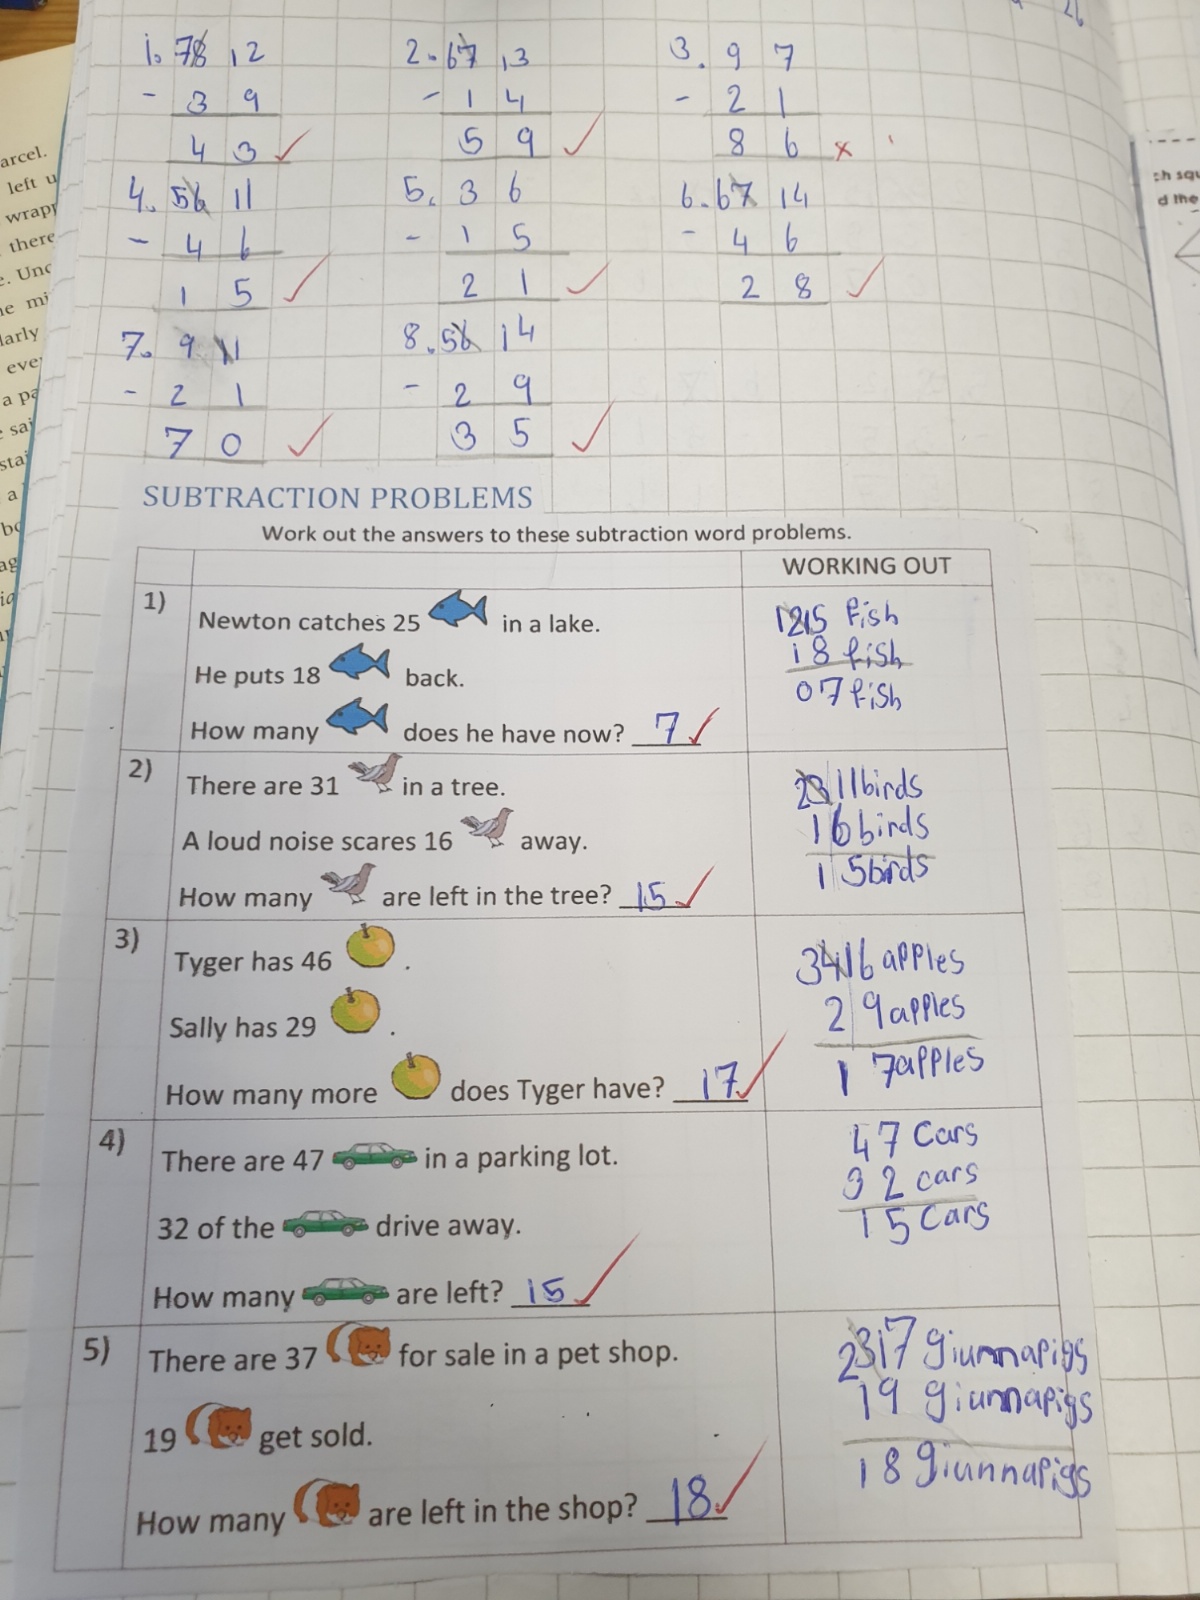 1. 78 12 2. 67 13 3. 9 7
- 3 9 - 1 4 - 2 1
4 3 ✓ 5 9 ✓ 8 6 x
4. 56 11 5. 3 6 6. 67 14
- 4 6 - 1 5 - 4 6
1 5 ✓ 2 1 ✓ 2 8 ✓
7. 9 1 8. 56 14
- 2 1 - 2 9
7 0 ✓ 3 5 ✓
SUBTRACTION PROBLEMS
Work out the answers to these subtraction word problems.
WORKING OUT
1)
Newton catches 25 in a lake.
He puts 18 back.
How many does he have now? 7 ✓
1215 fish
18 fish
07 fish
2)
There are 31 in a tree.
A loud noise scares 16 away.
How many are left in the tree? 15 ✓
23 11 birds
16 birds
1 5 birds
3)
Tyger has 46 .
Sally has 29 .
How many more does Tyger have? 17 ✓
3416 apples
2 9 apples
1 7 apples
4)
There are 47 in a parking lot.
32 of the drive away.
How many are left? 15 ✓
47 Cars
32 cars
15 Cars
5)
There are 37 for sale in a pet shop.
19 get sold.
How many are left in the shop? 18 ✓
2317 giunnapigs
19 giunnapigs
18 giunnapigs
arcel.
left u
wrapp
there
e. Unc
larly
eve
a pa
a
ch squ
d the